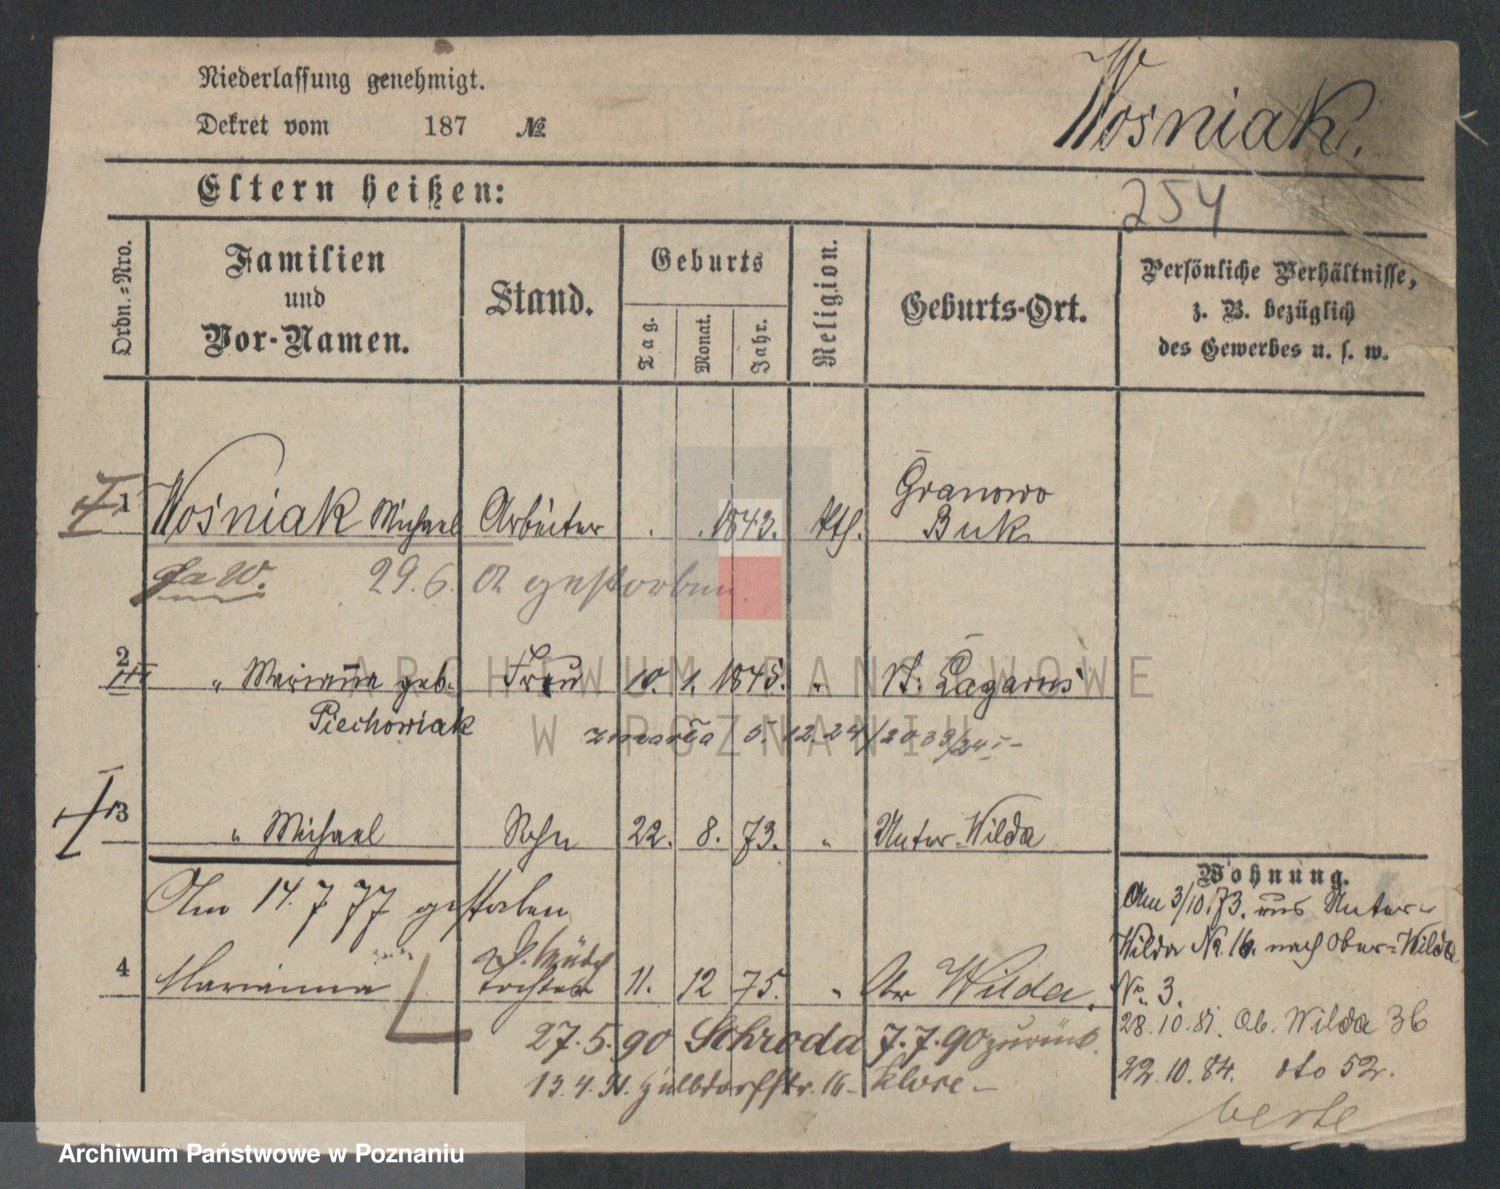 Niederlassung genehmigt.
Dekret vom 187 №
Wosniak.
Eltern heißen:
254
Ordn.-Nro.
Familien
und
Vor-Namen.
Stand.
Geburts
Tag.
Monat.
Jahr.
Religion.
Geburts-Ort.
Persönliche Verhältnisse,
z. B. bezüglich
des Gewerbes u. s. w.
1 Wośniak Michael Arbeiter . . 1843. kth. Granowo
Buk
29.6. 02 gestorben
2 " Marianna geb. Frau 10. 1. 1845. " St. Lazarus
Piechowiak
zmarła 5.12.24/
3 " Michael Sohn 22. 8. 73. " Unter-Wilda
Am 14. 7 77 gestorben
4 Marianna Tochter 11. 12 75. " Ober Wilda.
27.5.90 Schroda 7.7.90 zurück.
13.4.91. 16-
Wohnung.
Am 3/10.73. aus Unter-
Wilda No. 16. nach Ober-Wilda
No. 3.
28.10.81. Ob. Wilda 36
22.10.84. dto 52.
ARCHIWUM PAŃSTWOWE
W POZNANIU
Archiwum Państwowe w Poznaniu